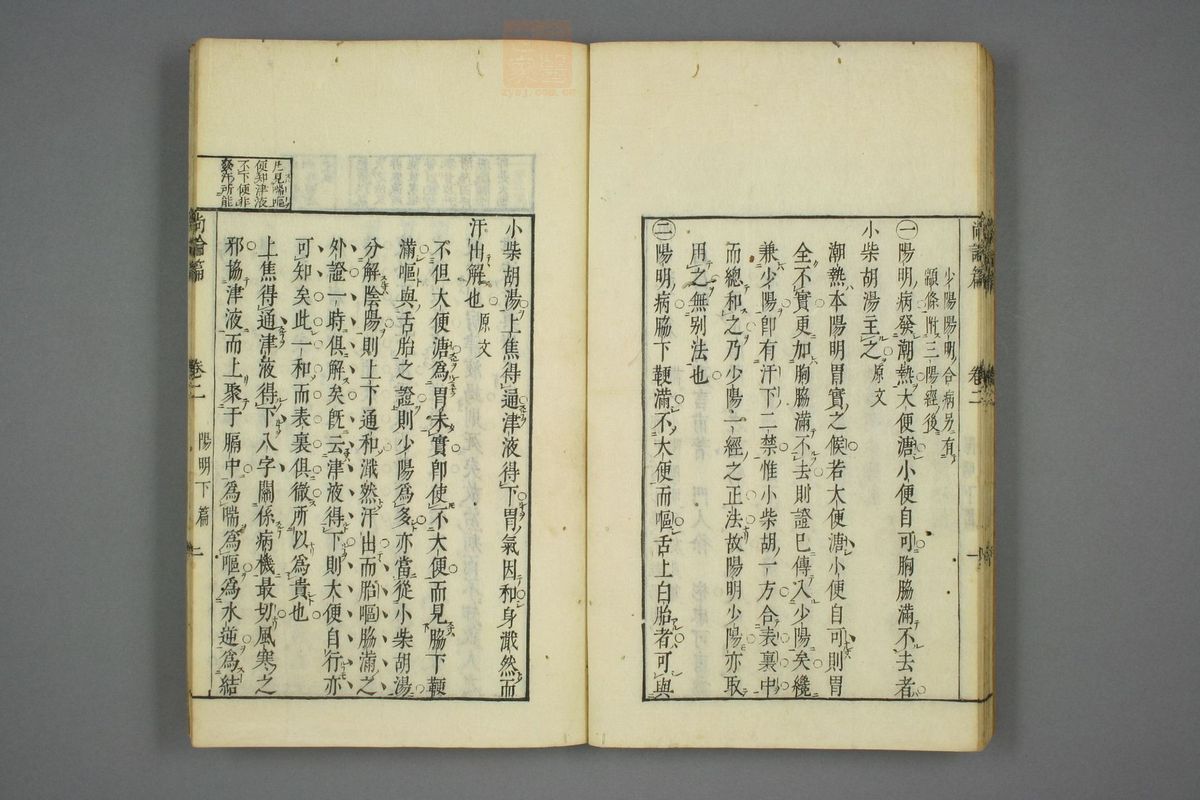 尚論篇 卷二 一
少陽陽明合病另有
顓條附三陽經後
㊀陽明病發潮熱大便溏小便自可胸脇滿不去者
小柴胡湯主之原文
潮熱本陽明胃實之候若大便溏小便自可則胃
全不實更加胸脇滿不去則證已傳入少陽矣纔
兼少陽卽有汗下二禁惟小柴胡一方合表裏中
而總和之乃少陽一經之正法故陽明少陽亦取
用之無別法也
㊁陽明病脇下鞕滿不大便而嘔舌上白胎者可與
小柴胡湯上焦得通津液得下胃氣因和身濈然而
汗出解也原文
不但大便溏為胃未實卽使不大便而見脇下鞕
滿嘔與舌胎之證則少陽為多亦當從小柴胡湯
分解陰陽則上下通和濈然汗出而胎嘔脇滿之
外證一時俱解矣旣云津液得下則大便自行亦
可知矣此一和而表裏俱徹所以為貴也
上焦得通津液得下八字關係病機最切風寒之
邪協津液而上聚于膈中為喘為嘔為水逆為結
凡見喘嘔
便知津液
不下便非
發汗所能
尚論篇 卷二 陽明下篇 二
zysj.com.cn